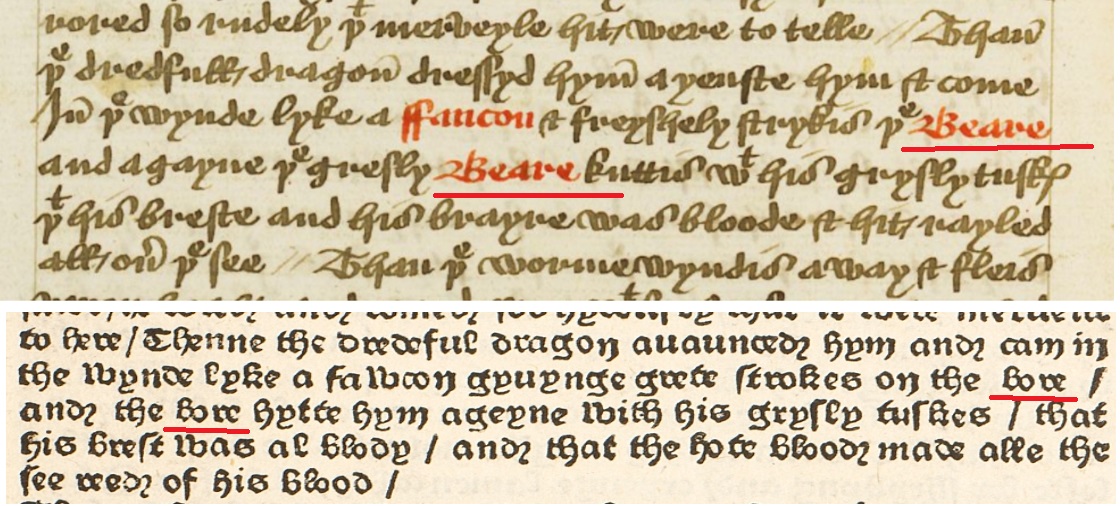 rored so rudely þͭ merveyle hit were to telle // Than̄
þͤ dredfull dragon̄ dressyd hym̄ a yenste hym & come
In̄ þͤ wynde lyke a ffaucon & freyshely strykis þͤ Beare
and agayne þͤ gresly Beare kuttis wͭ his grysly tuskꝭ
þͭ his breste and his brayne was bloode & hit rayled
all on̄ þͤ see // Than þͤ worme wyndis away & fleis
to here / Thenne the dredeful dragon auaunced hym and cam in
the wynde lyke a fawcon gyuynge grete strokes on the bore /
and the bore hytte hym ageyne with his grysly tuskes / that
his brest was al blody / and that the hote blood made alle the
see reed of his blood /